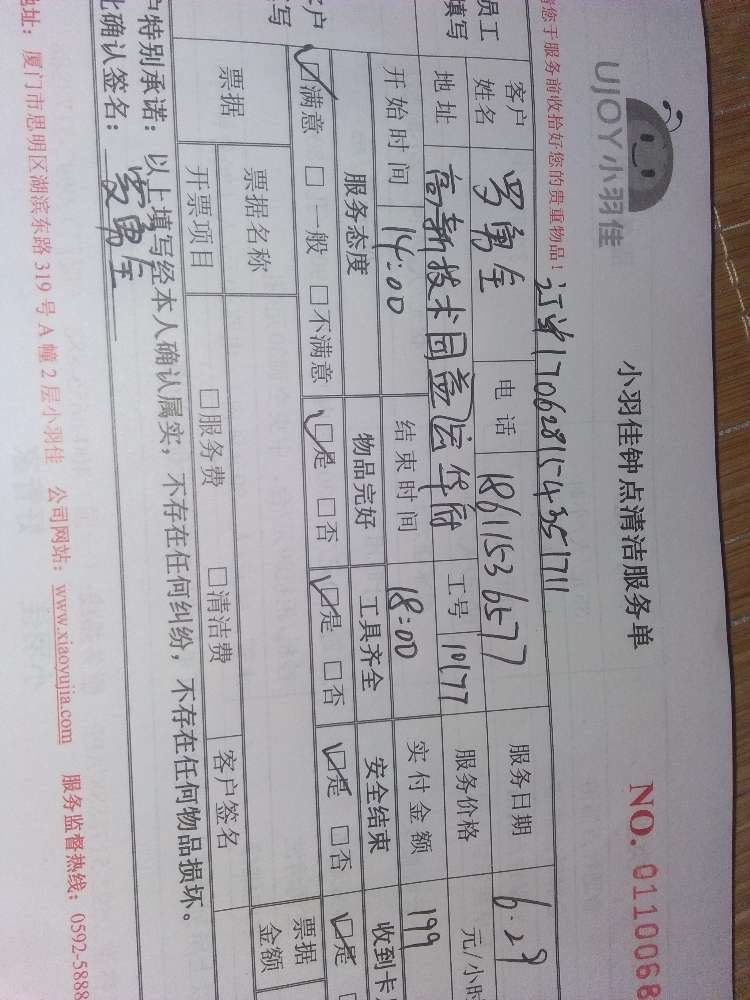 UJOY小羽佳
小羽佳钟点清洁服务单
NO. 0110068
您于服务前收拾好您的贵重物品！
订单170628154351711
员工
填写
客户
姓名
罗勇全
电话
18611536577
服务日期
6.29
地址
高新技术园益运华府
工号
10177
服务价格
元/小时
开始时间
14:00
结束时间
18:00
实付金额
199
客户
写
服务态度
物品完好
工具齐全
安全结束
收到卡
☑满意 □一般 □不满意
☑是 □否
☑是 □否
☑是 □否
☑是
票据
票据名称
票据
金额
开票项目
□服务费 □清洁费
客户签名
户特别承诺：以上填写经本人确认属实，不存在任何纠纷，不存在任何物品损坏。
此确认签名：罗勇全
地址：厦门市思明区湖滨东路 319 号 A 幢 2 层小羽佳 公司网站：www.xiaoyujia.com 服务监督热线：0592-5888